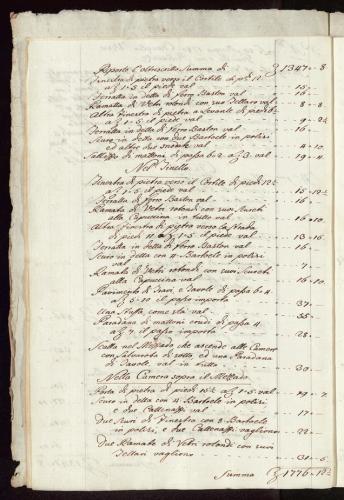 Riporto l'oltrescritta Summa di 1347 - 8
Finestra di pietra verso il Cortile di p: 12
a ƺ 1-5 il piede val 15
Ferratta in detta di ferro Baston val 16
Ramatta di Vetri rotondi con suo Tellaro val 8 - 8
Altra finestra di pietra a Levante di piedi
a ƺ 1-5 il piede val 9
Ferratta in detta di ferro Baston val 16
Scuro in detta con due Barbole in poliri
ed altre due snodate val 4 - 10
Saliggio di mattoni di passa 6 2 a ƺ 3 val 19
Nel Tinello
Finestra di pietra verso il Cortile di piedi 12
a ƺ 1-5 il piede val 15
Ferratta di ferro Baston val 16
Ramata di Vetri rotondi con suoi
alla Capuccina in tutto val 16 - 10
Altra finestra di pietra verso la Strada
di piedi 11 a ƺ 1-5 il piede val 13
Ferratta in detta di ferro Baston val 16
Scuro in detta con 4 Barbole in poliri
val 7
Ramata di Vetri rotondi con suoi
alla Capuccina val 16 - 10
Pavimento di Travi, e Tavole di passa 6
a ƺ il passo importa 37
Una Stuffa come stà val 55
Paradana di mattoni crudi di passa 4
a ƺ 7 il passo importa 28
Scalla nel Mezzado che ascende alle Camere
con di sotto, ed una Paradana
di Tavole val in tutto 30
Nella Camera sopra il Mezzado
Porta di pietra di piedi 15 a ƺ 1-5 val 19
Scuro in detta con 4 Barbole in poliri
e due Cattenazzi val 17
Due Scuri di Finestra con 8 Barbole
in poliri, e due Cattenazzi vagliono 22
Due Ramate di Vetri rotondi con suoi
Tellari vagliono 31 - 6
Summa 1776